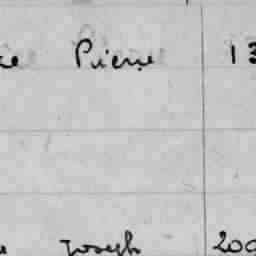 Pierre 13
Joseph 200